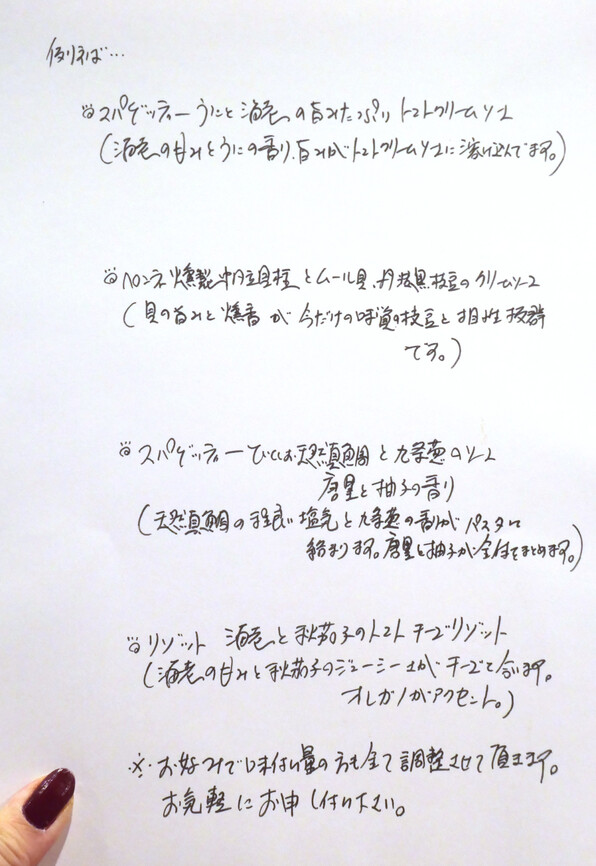 例えば…
スパゲッティー うにと海老の旨みたっぷり トマトクリームソース
(海老の甘みとうにの香り、旨みがトマトクリームソースに溶け込んでます。)
ペンネ 燻製帆立貝柱とムール貝、丹波黒枝豆のクリームソース
(貝の旨みと燻香が今だけの味覚の枝豆と相性抜群
です。)
スパゲッティー 天然真鯛と九条葱のソース
唐墨と柚子の香り
(天然真鯛の程良い塩気と九条葱の香りがパスタに
絡まります。唐墨と柚子が全体をまとめます。)
リゾット 海老と秋茄子のトマトチーズリゾット
(海老の甘みと秋茄子のジューシーさがチーズで合います。
オレガノがアクセント。)
※ お好みで味付け量の方も全て調整させて頂きます。
お気軽にお申し付け下さい。